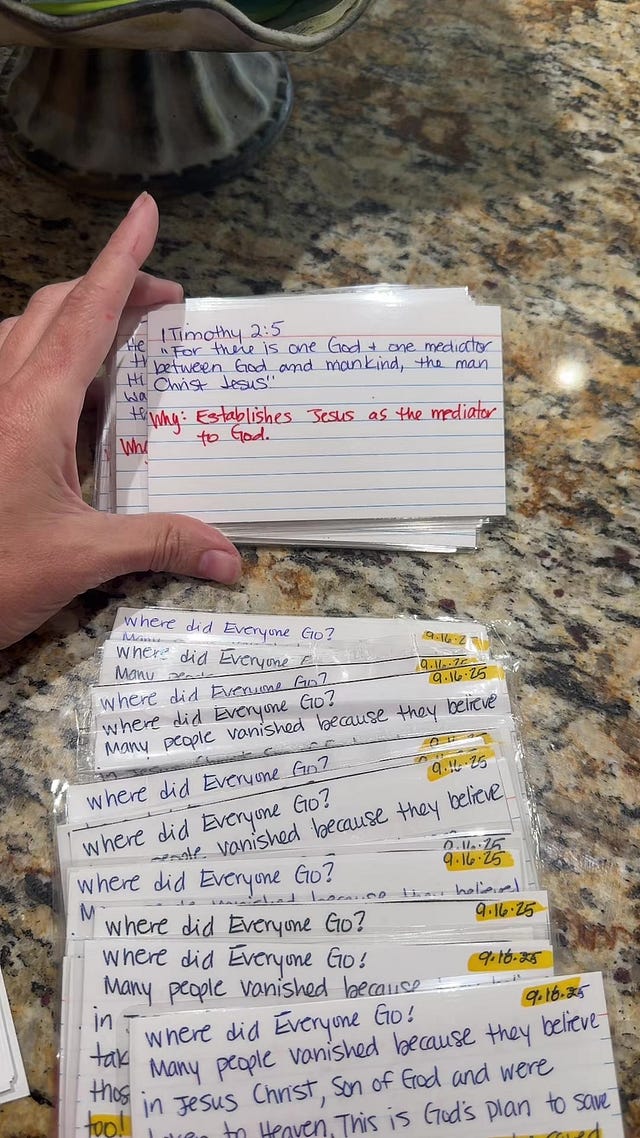 1 Timothy 2:5
"For there is one God + one mediator
between God and mankind, the man
Christ Jesus"
Why: Establishes Jesus as the mediator
to God.
He
Hi
wa
Why
where did Everyone Go?
9.16.2
Many
where did Everyone
9.16.25
Many
9.16.25
where did Everyone Go?
where did Everyone Go?
Many people vanished because they believe
where did Everyone Go?
9.16.25
where did Everyone Go?
people vanished because they believe
9.16.25
where did Everyone Go?
9.16.25
where did Everyone Go?
9.16.25
where did Everyone Go!
9.16.25
Many people vanished because
in
tak
thos
too!
where did Everyone Go!
9.16.25
Many people vanished because they believe
in Jesus Christ, Son of God and were
taken to Heaven. This is God's plan to save